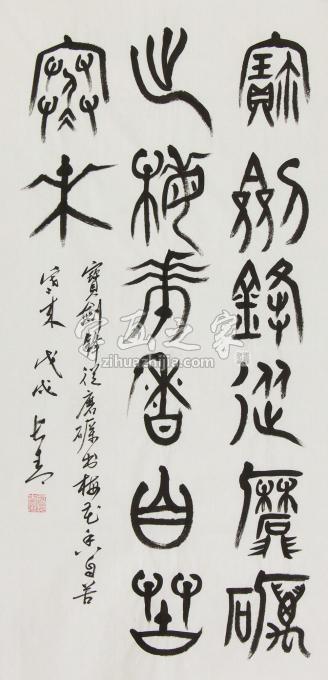 寶劍鋒從磨礪
出梅花香自苦
寒來
寶劍鋒從磨礪出梅花香自苦
寒來 戊戌
字画之家
zihuazhijia.com